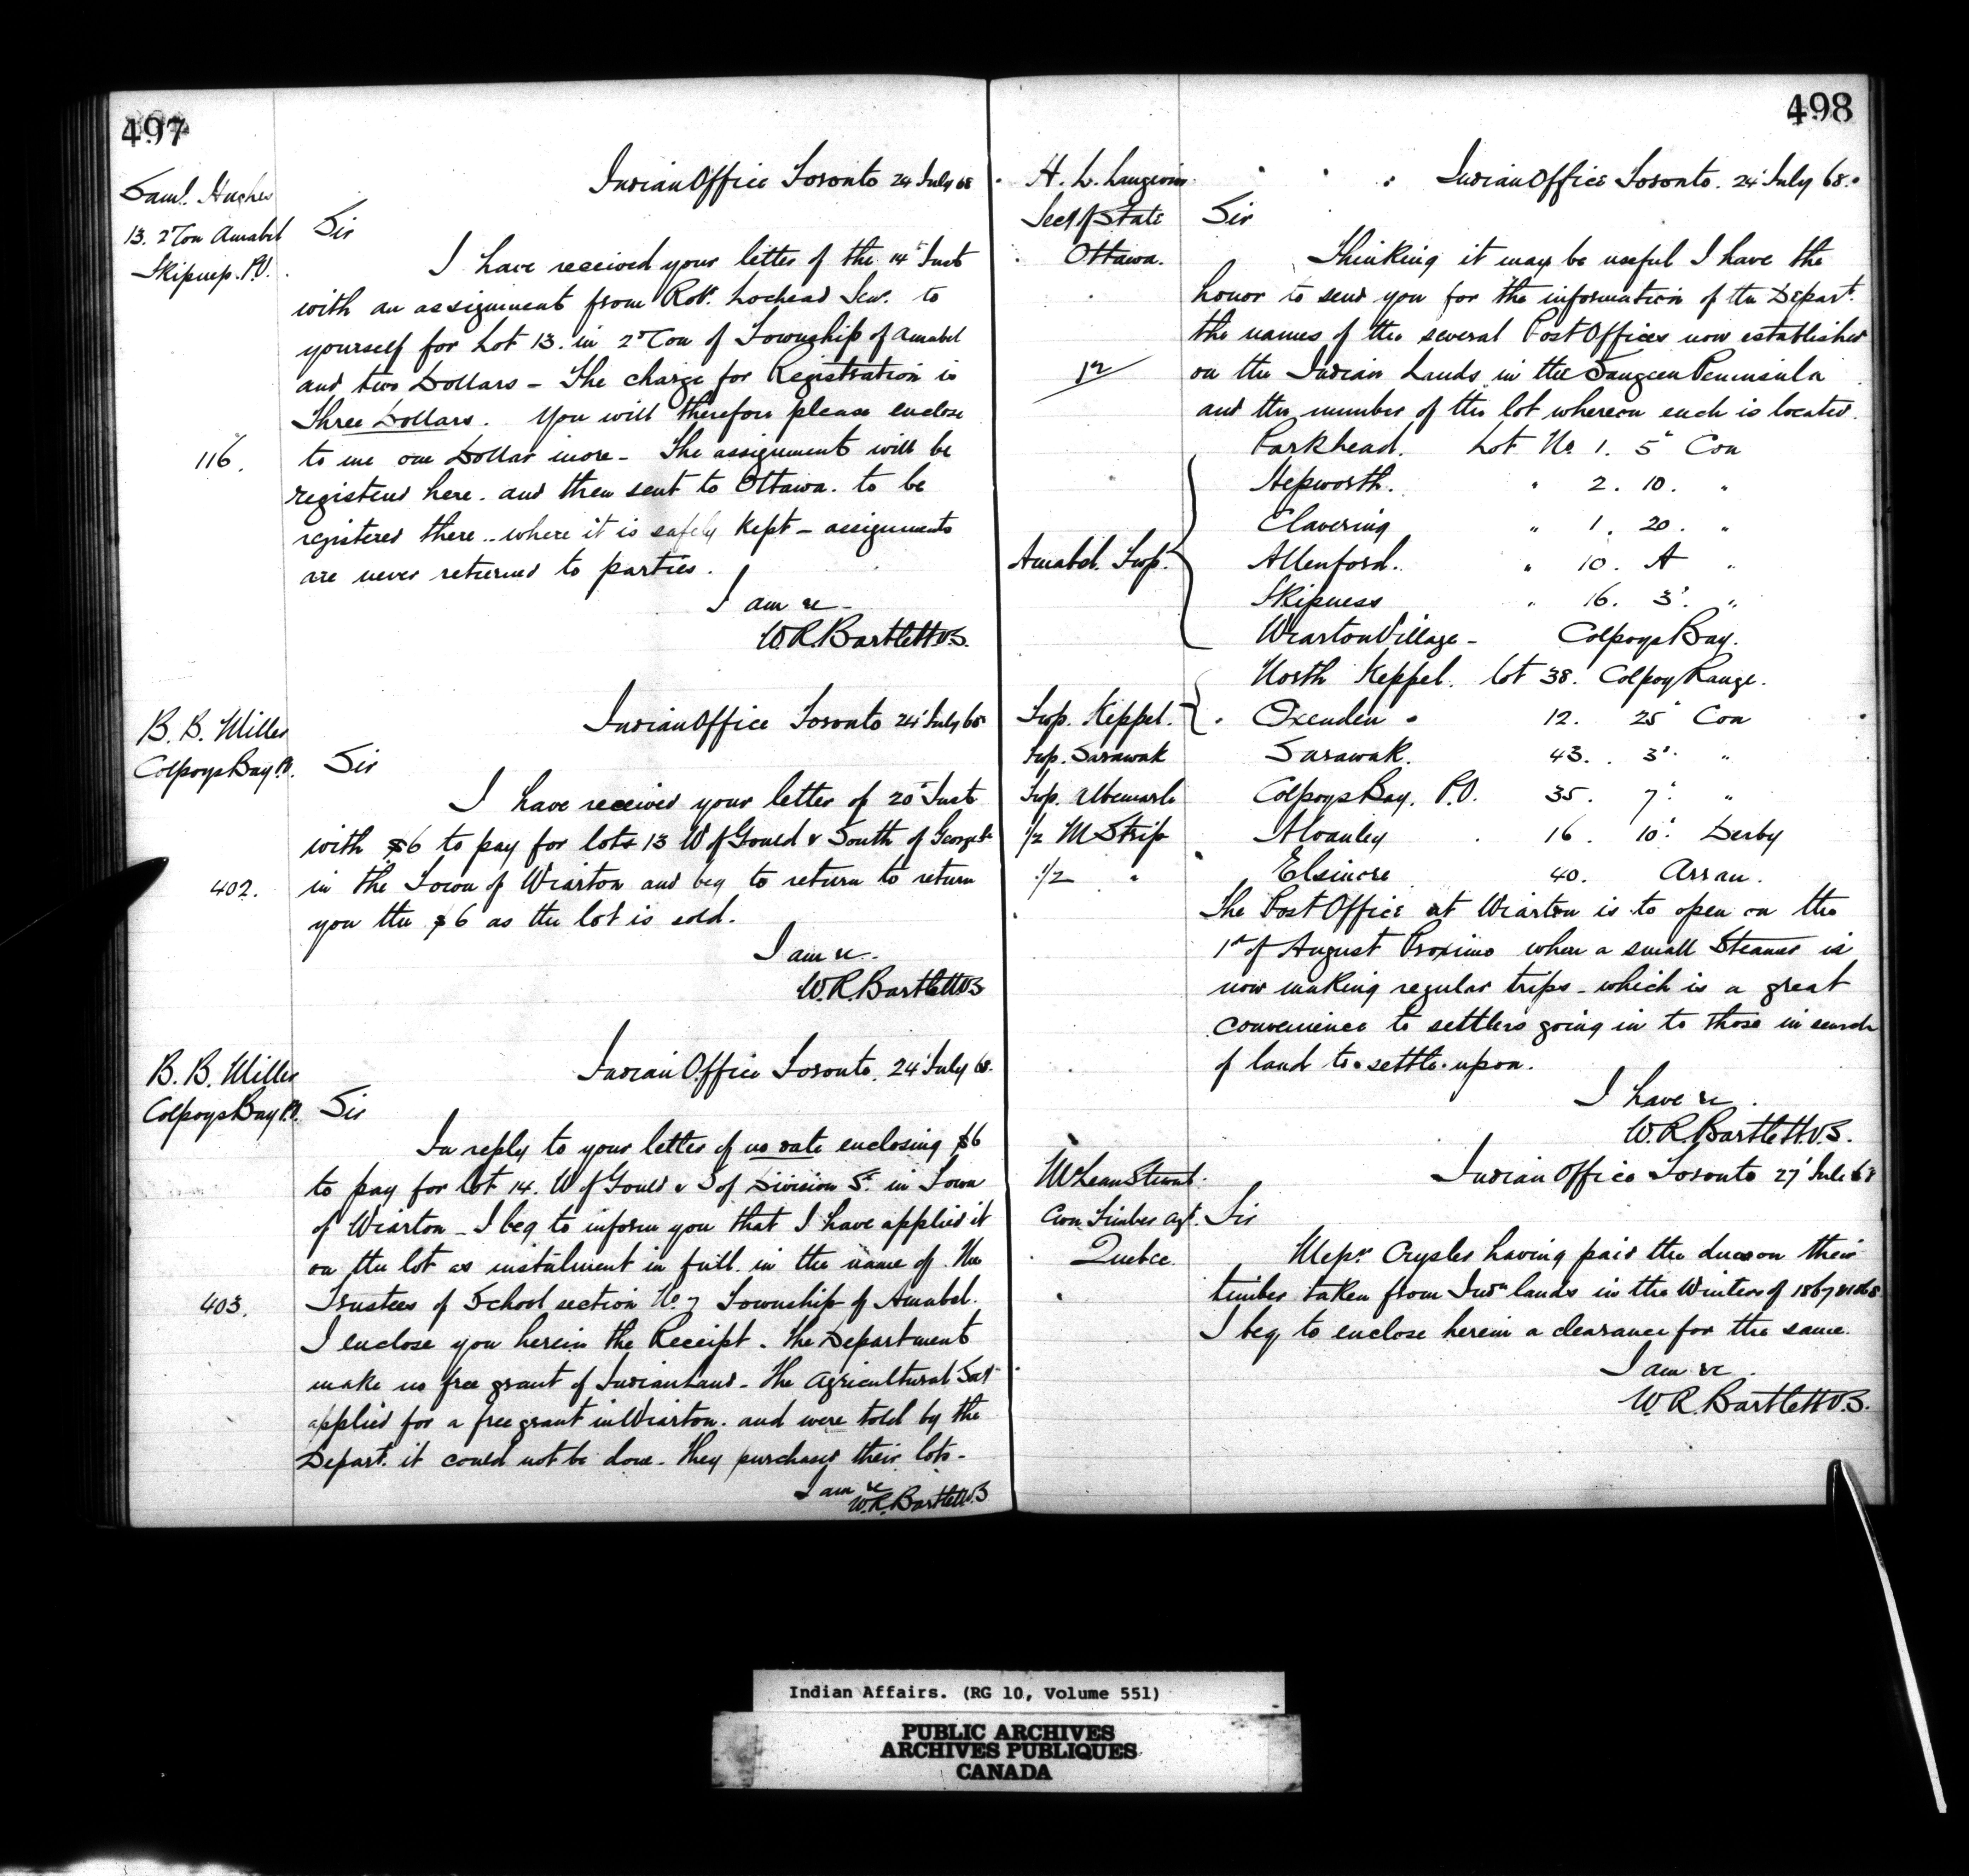 497
Saml. Hughes
13. 2d Con Amabel
Skipness. P.O.
Indian Office Toronto 24 July 68
Sir
I have received your letter of the 14th Inst
with an assignment from Robt. Lochead Senr. to
yourself for Lot 13. in 2d Con of Township of Amabel
and two Dollars - The charge for Registration is
Three Dollars. You will therefore please enclose
116.
to me one Dollar more - The assignment will be
registered here. and then sent to Ottawa. to be
registered there .. where it is safely kept - assignments
are never returned to parties.
I am &c
W.R. Bartlett V.S.
B. B. Miller
Colpoys Bay P.O.
Indian Office Toronto 24 July 68
Sir
I have received your letter of 20th Inst
with $6 to pay for lots 13 W of Gould & South of George St
402.
in the Town of Wiarton and beg to return to return
you the $6 as the lot is sold.
I am &c.
W.R. Bartlett V.S
B. B. Miller
Colpoys Bay P.O.
Indian Office Toronto. 24 July 68.
Sir
In reply to your letter of no date enclosing $6
to pay for lot 14. W of Gould & S of Division St. in Town
of Wiarton - I beg to inform you that I have applied it
on the lot as instalment in full. in the name of. the
403.
Trustees of School section No. 7 Township of Amabel.
I enclose you herein the Receipt. The Department
make no free grant of Indian Land - The Agricultural Soc
applied for a free grant in Wiarton. and were told by the
Depart. it could not be done. They purchased their lots.
I am &c
W.R. Bartlett V.S
498
H. L. Langevin
Secy of State
Ottawa.
Indian Office Toronto. 24 July 68.
Sir
Thinking it may be useful I have the
honor to send you for the information of the Depart.
the names of the several Post Offices now established
on the Indian Lands in the Saugeen Peninsula
and the number of the lot whereon each is located.
Amabel. Twp.
Parkhead. Lot No. 1. 5th Con
Hepworth. " 2. 10. "
Clavering " 1. 20. "
Allenford. " 10. A "
Skipness " 16. 3d. "
Wiarton Village - Colpoys Bay.
North Keppel. lot 38. Colpoy Range.
Twp. Keppel. Oxenden 12. 25th Con
Twp. Sarawak Sarawak. 43. 3d. "
Twp. Albemarle Colpoys Bay. P.O. 35. 7th. "
1/2 M Strip Alvanley 16 10th. Derby
1/2 " Elsinore 40. Arran.
The Post Office at Wiarton is to open on the
1st of August Proximo when a small Steamer is
now making regular trips - which is a great
convenience to settlers going in to those in search
of land to settle upon.
I have &c.
W.R. Bartlett V.S.
McLean Stewart.
Crown Timber Agt.
Quebec.
Indian Office Toronto 27 July 68
Sir
Messrs. Crysler having paid the dues on their
timber taken from Indn lands in the Winter of 1867 and 68
I beg to enclose herein a clearance for the same.
I am &c.
W.R. Bartlett V.S.
Indian Affairs. (RG 10, Volume 551)
PUBLIC ARCHIVES
ARCHIVES PUBLIQUES
CANADA